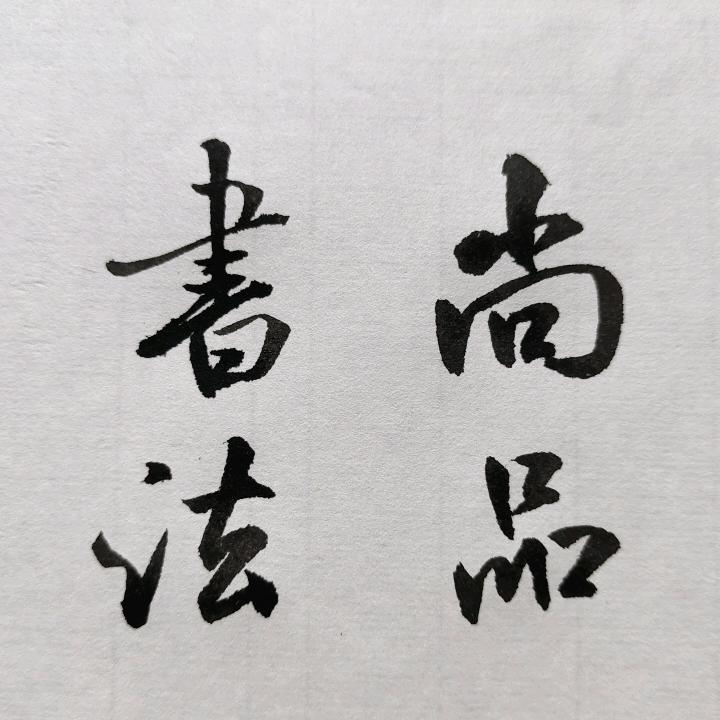 尚品
書法